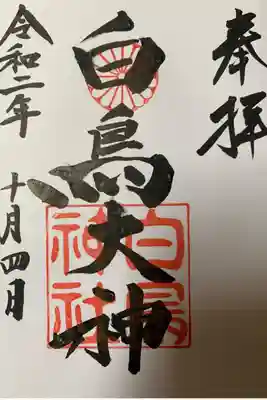 奉拝
白鳥大神
白鳥
神社
令和二年
十月四日